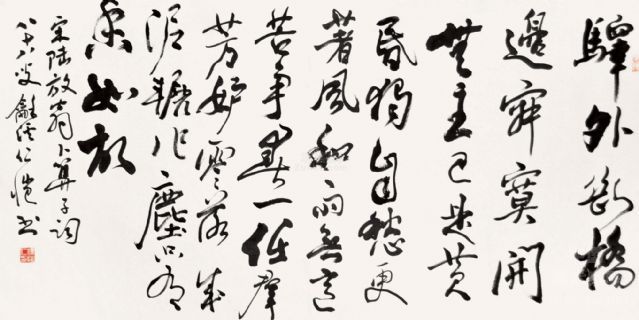 驛外断橋
邊寂寞開
無主已是黄
昏獨自愁更
著風和雨無意
苦爭春一任羣
芳妒零落成
泥輾作塵只有
香如故
宋陸放翁卜算子詞
八十六叟龢溪仁愷书